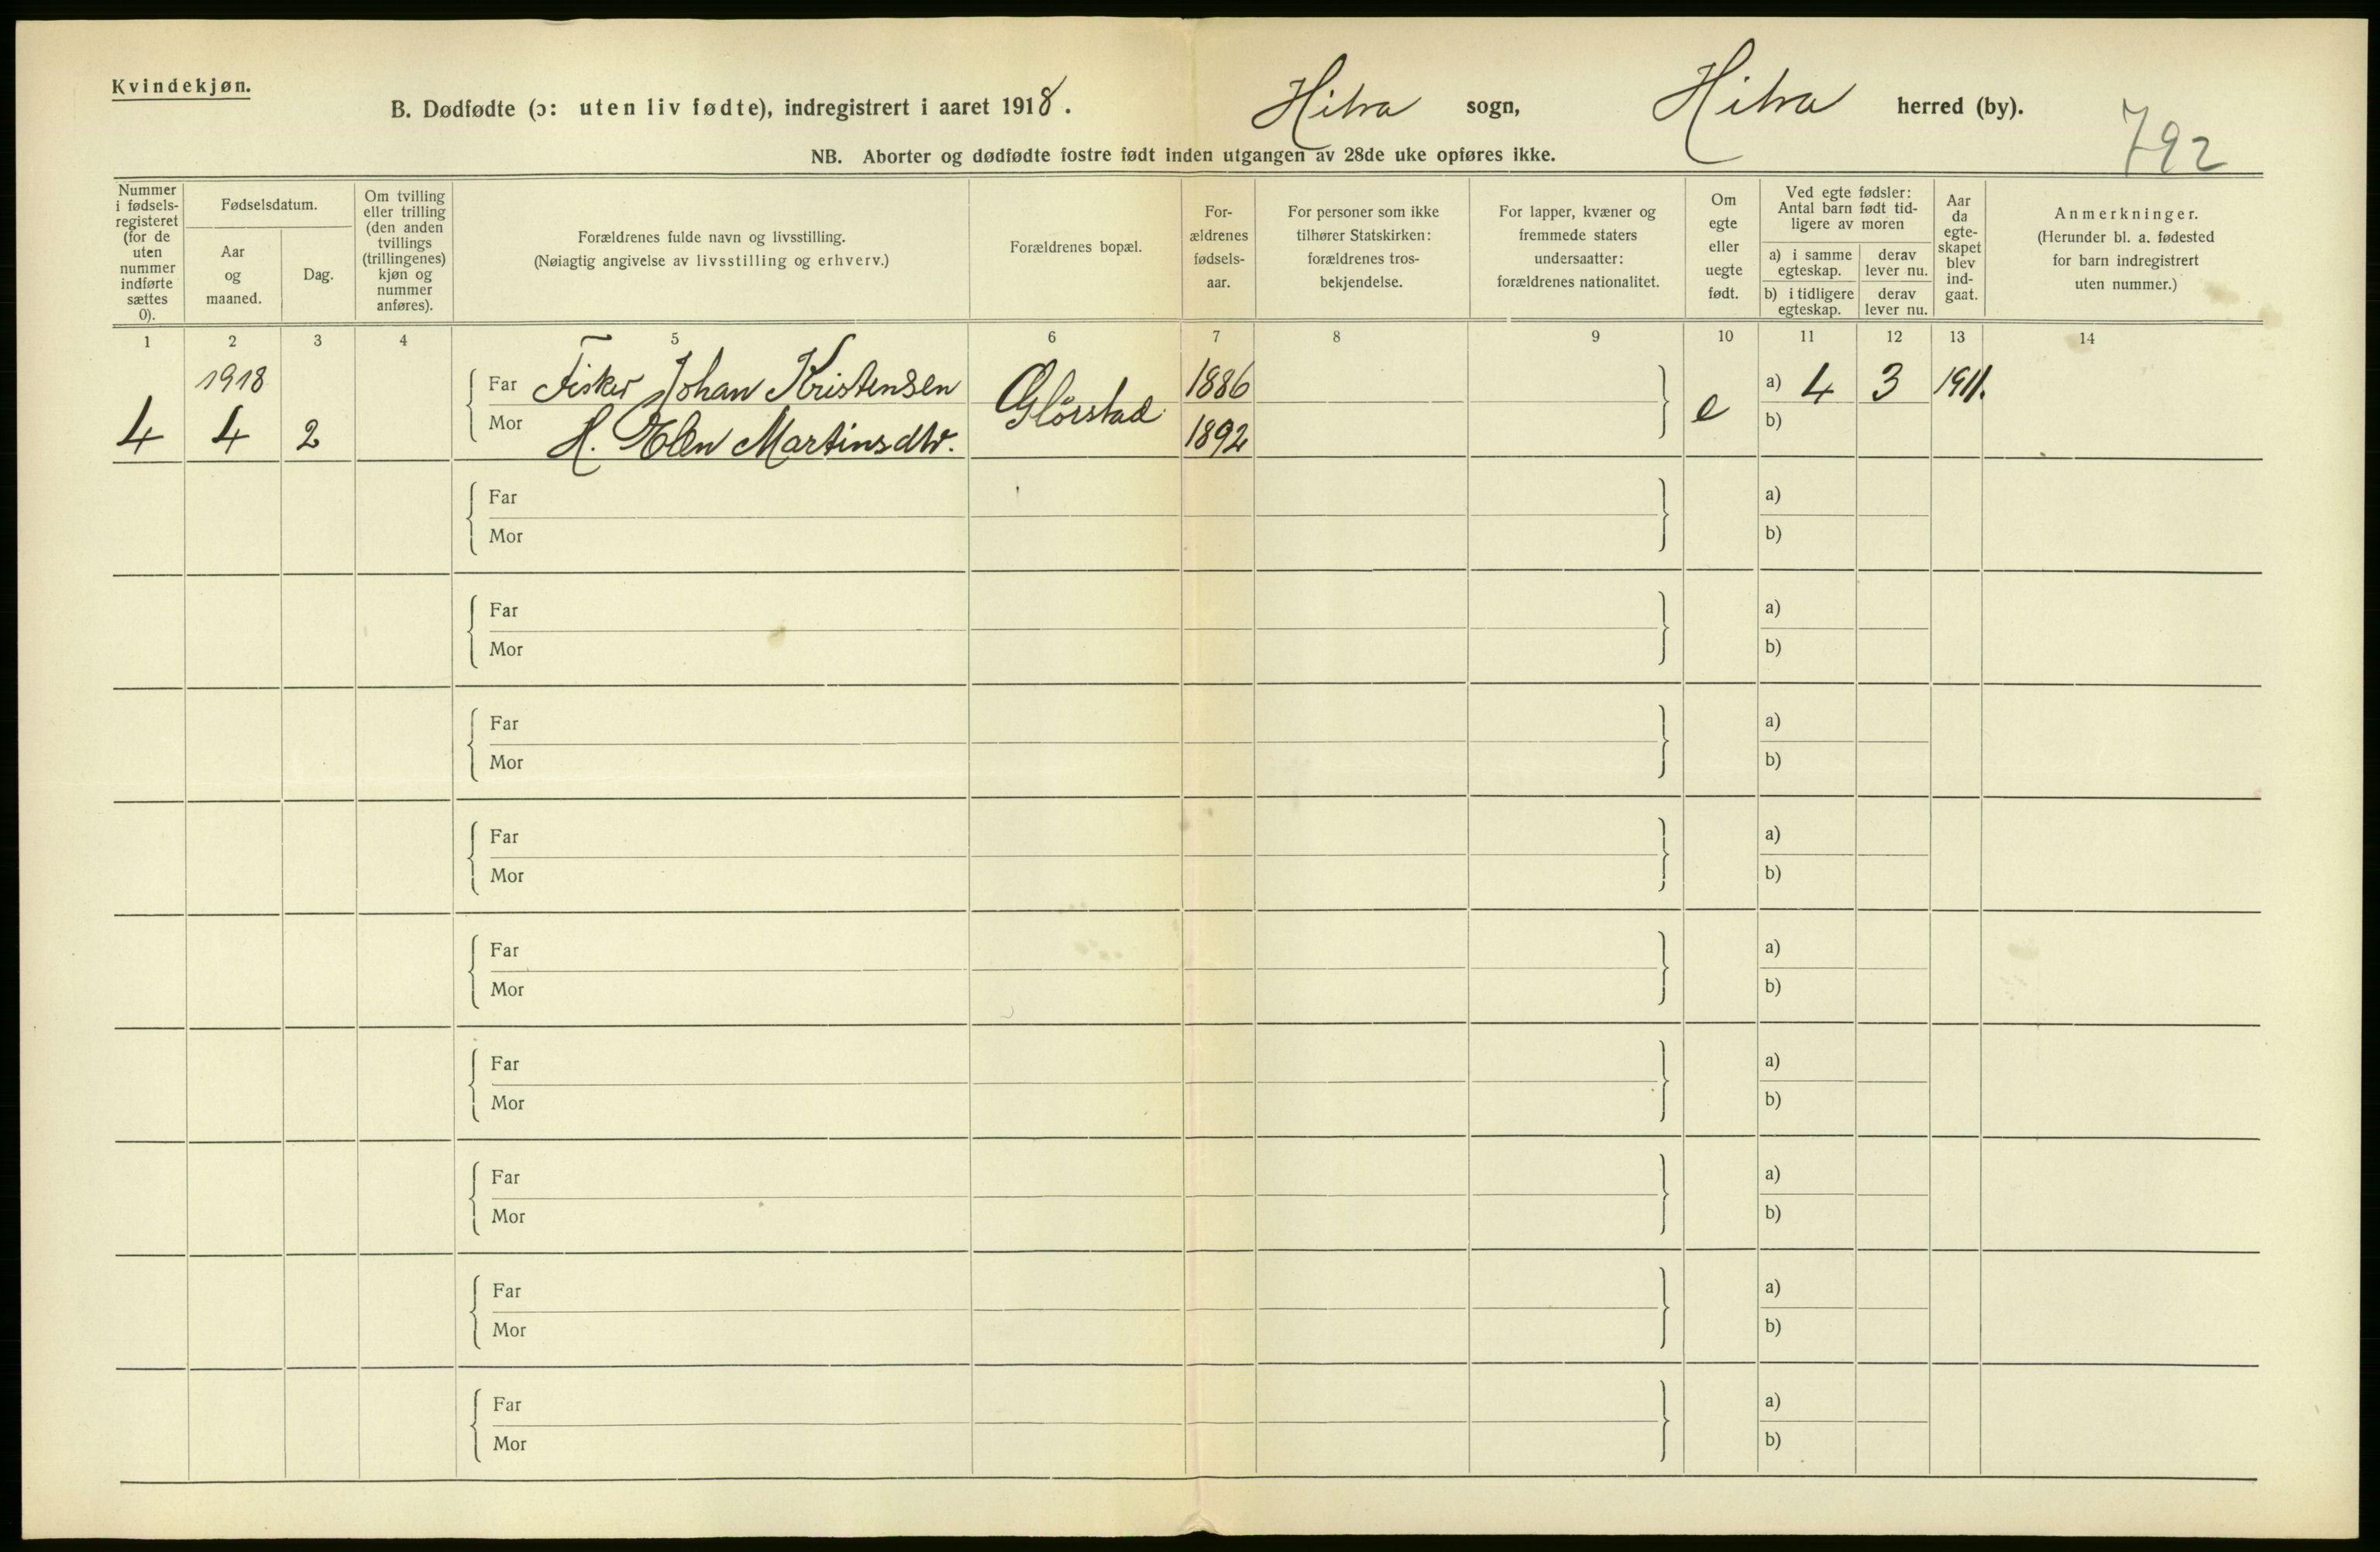 Kvindekjøn.
B. Dødfødte (ɔ: uten liv fødte), indregistrert i aaret 1918. Hitra sogn, Hitra herred (by).
792
NB. Aborter og dødfødte fostre født inden utgangen av 28de uke opføres ikke.
Nummer i fødsels-registeret (for de uten nummer indførte sættes 0).
Fødselsdatum.
Aar og maaned.
Dag.
Om tvilling eller trilling (den anden tvillings (trillingenes) kjøn og nummer anføres).
Forældrenes fulde navn og livsstilling.
(Nøiagtig angivelse av livsstilling og erhverv.)
Forældrenes bopæl.
For-ældrenes fødsels-aar.
For personer som ikke tilhører Statskirken: forældrenes tros-bekjendelse.
For lapper, kvæner og fremmede staters undersaatter: forældrenes nationalitet.
Om egte eller uegte født.
Ved egte fødsler: Antal barn født tid-ligere av moren
a) i samme egteskap.
derav lever nu.
b) i tidligere egteskap.
derav lever nu.
Aar da egte-skapet blev ind-gaat.
Anmerkninger.
(Herunder bl. a. fødested for barn indregistrert uten nummer.)
1 2 3 4 5 6 7 8 9 10 11 12 13 14
1918
Far Fisker Johan Kristensen 1886 a) 4 3 1911.
4 4 2 Glörstad e
Mor H. Elen Martinsdtr. 1892 b)
Far a)
Mor b)
Far a)
Mor b)
Far a)
Mor b)
Far a)
Mor b)
Far a)
Mor b)
Far a)
Mor b)
Far a)
Mor b)
Far a)
Mor b)
Far a)
Mor b)